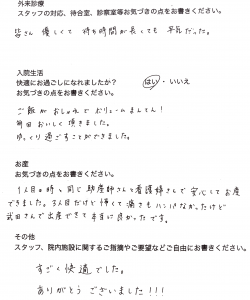 外来診療
スタッフの対応、待合室、診察室等お気づきの点をお書きください。
皆さん 優しくて 待ち時間が長くても 平気だった。
入院生活
快適にお過ごしになれましたか？ はい・いいえ
お気づきの点をお書きください。
ご飯がおしゃれでボリュームまんてん!
毎回おいしく頂きました。
ゆっくり過ごすことができました。
お産
お気づきの点をお書きください。
1人目の時と同じ助産師さんと看護婦さんで安心してお産
できました。3人目だけど怖くて痛さもハンパなかったけど
武田さんで出産できて本当に良かったです。
その他
スタッフ、院内施設に関するご指摘やご要望などご自由にお書きください。
すごく快適でした。
ありがとうございました!!!